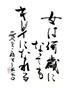 女は何歳に
なっても
キレイになれる